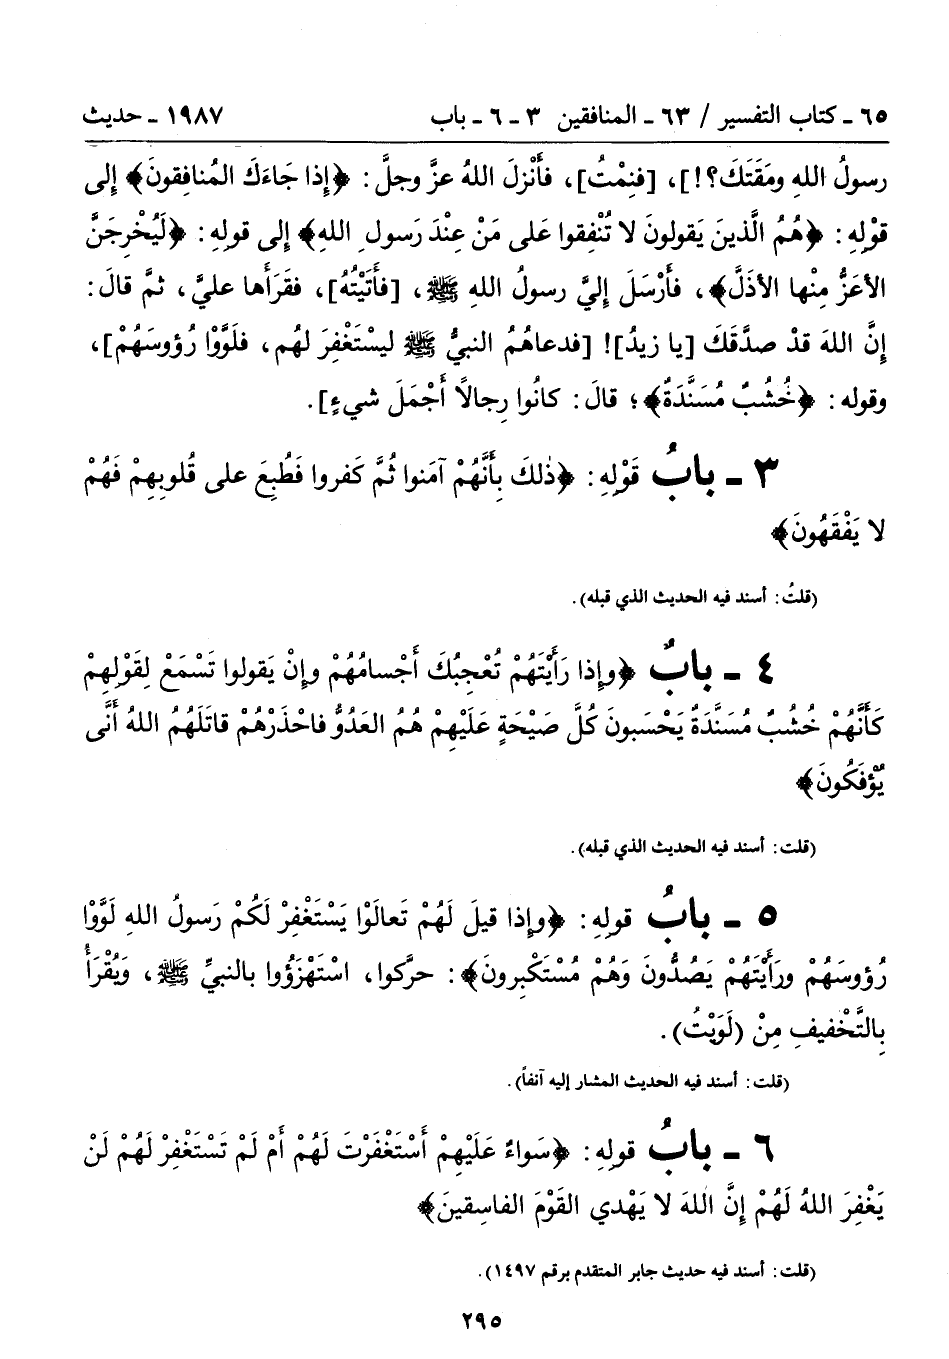 ٦٥ - كتاب التفسير / ٦٣ - المنافقين ٣ - ٦ - باب ١٩٨٧ - حديث
رسولُ اللهِ ومَقَتَكَ؟!]، [فنِمْتُ]، فأَنْزلَ اللهُ عزَّ وجلَّ: ﴿إذا جَاءَكَ المُنافِقونَ﴾ إلى
قوْلِهِ: ﴿هُمُ الَّذينَ يَقولونَ لا تُنْفِقوا عَلى مَنْ عِنْدَ رَسولِ اللهِ﴾ إلى قولِهِ: ﴿لَيُخْرِجَنَّ
الأعَزُّ مِنْها الأذَلَّ﴾، فأَرْسَلَ إليَّ رسولُ اللهِ ﷺ، [فأَتَيْتُهُ]، فقَرَأها عليَّ، ثمَّ قالَ:
إنَّ اللهَ قدْ صدَّقَكَ [يا زيدُ]! [فدعاهُمُ النبيُّ ﷺ ليسْتَغْفِرَ لهُم، فلَوَّوْا رُؤوسَهُمْ]،
وقوله: ﴿خُشُبٌ مُسَنَّدَةٌ﴾؛ قالَ: كانُوا رِجالاً أَجْمَلَ شيءٍ].
٣ - بابُ قَوْلِهِ: ﴿ذٰلكَ بِأنَّهُمْ آمَنوا ثُمَّ كَفروا فَطُبِعَ على قُلوبِهِمْ فَهُمْ
لا يَفْقَهُونَ﴾
(قلتُ: أسند فيه الحديث الذي قبله).
٤ - بابٌ ﴿وإذا رَأيْتَهُمْ تُعْجِبُكَ أجْسامُهُمْ وإنْ يَقولوا تَسْمَعْ لِقَوْلِهِمْ
كَأنَّهُمْ خُشُبٌ مُسَنَّدَةٌ يَحْسَبونَ كُلَّ صَيْحَةٍ عَلَيْهِمْ هُمُ العَدُوُّ فاحْذَرْهُمْ قاتَلَهُمُ اللهُ أنَّى
يُؤْفَكُونَ﴾
(قلت: أسند فيه الحديث الذي قبله).
٥ - بابُ قولِهِ: ﴿وإذا قيلَ لَهُمْ تَعالَوْا يَسْتَغْفِرْ لَكُمْ رَسولُ اللهِ لَوَّوْا
رُؤوسَهُمْ ورَأيْتَهُمْ يَصُدُّونَ وَهُمْ مُسْتَكْبِرونَ﴾: حرَّكوا، اسْتَهْزَؤُوا بالنبيِّ ﷺ، وَيُقْرَأُ
بِالتَّخْفيفِ مِنْ (لَوَيْتُ).
(قلت: أسند فيه الحديث المشار إليه آنفاً).
٦ - بابُ قولِهِ: ﴿سَواءٌ عَلَيْهِمْ أَسْتَغْفَرْتَ لَهُمْ أمْ لَمْ تَسْتَغْفِرْ لَهُمْ لَنْ
يَغْفِرَ اللهُ لَهُمْ إنَّ اللهَ لا يَهْدي القَوْمَ الفاسِقينَ﴾
(قلت: أسند فيه حديث جابر المتقدم برقم ١٤٩٧).
٢٩٥